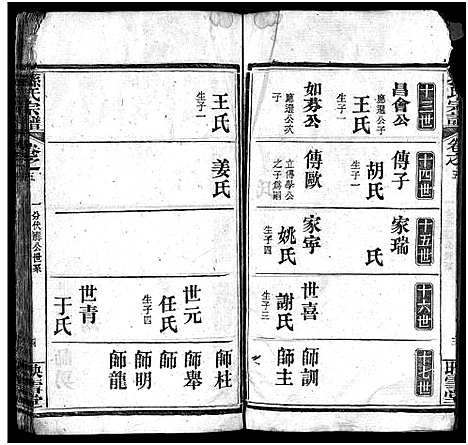 十三世
昌會公
應選公子
王氏
生子一
如芬公
應選公次子
王氏
生子一
十四世
傳子
胡氏
傳歐
立傳學公之子為嗣
姜氏
十五世
家瑞
氏
家宇
姚氏
生子四
十六世
世喜
謝氏
生子三
世元
任氏
生子四
世青
于氏
十七世
師訓
師主
師杜
師舉
師明
師龍
氏宗譜
卷之五
一分代
公世系
映雪堂